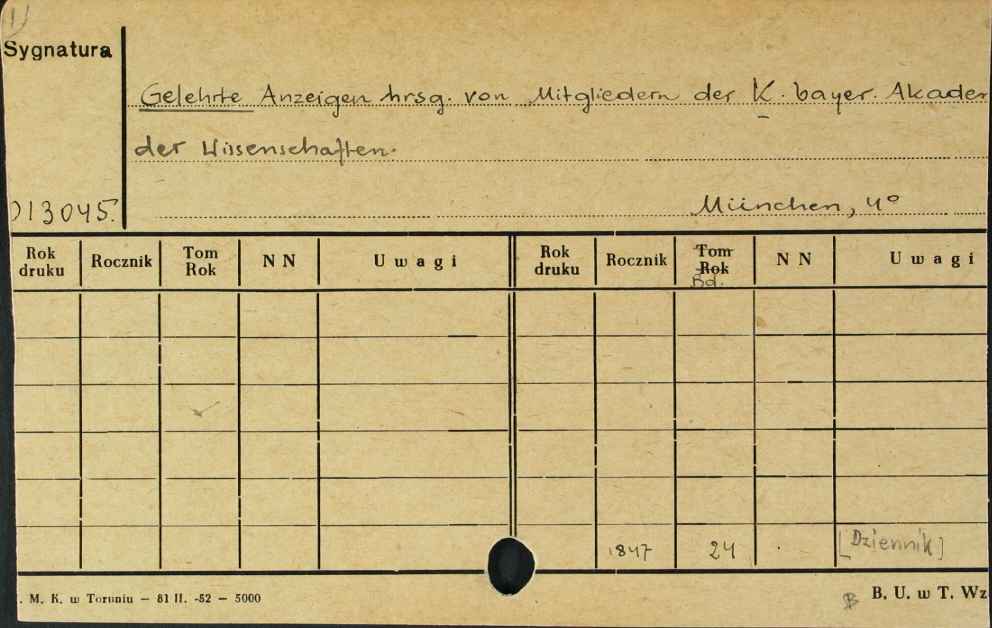 1)
Sygnatura
Gelehrte Anzeigen hrsg. von Mitgliedern der K. bayer. Akadem
der Wissenschaften.
013045.
München, 4°
Rok druku Rocznik Tom Rok N N Uwagi Rok druku Rocznik Tom Rok Bd. N N Uwagi
1847 24 [Dziennik]
. M. K. w Toruniu — 81 II. -52 — 5000
B B. U. w T. Wz